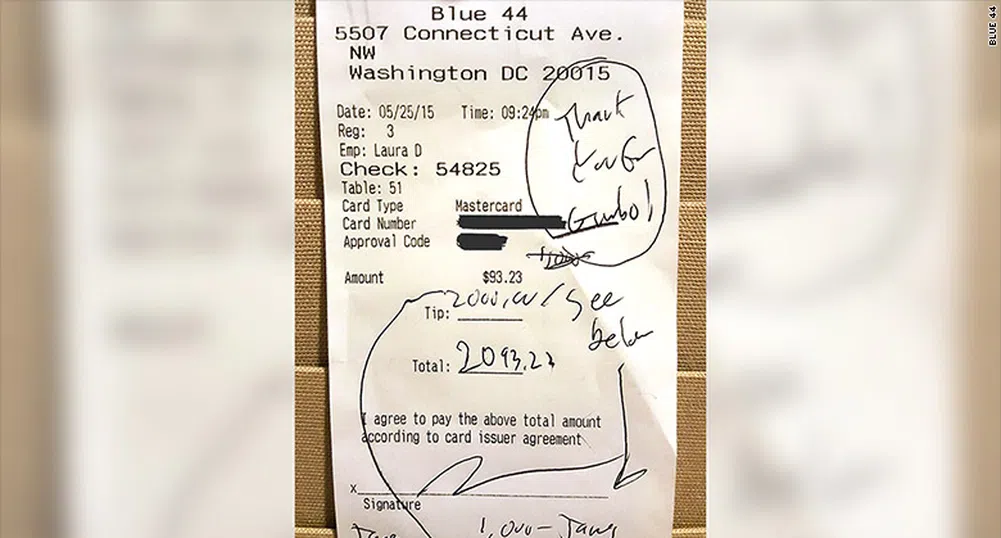 Blue 44
5507 Connecticut Ave.
NW
Washington DC 20015
Date: 05/25/15 Time: 09:24pm
Reg: 3
Emp: Laura D
Check: 54825
Table: 51
Card Type Mastercard
Card Number
Approval Code
Thank
You For
Gumbo!
Amount $93.23
Tip: 2000.00 / See
below
Total: 2093.23
I agree to pay the above total amount
according to card issuer agreement
x
Signature
1,000-
BLUE 44